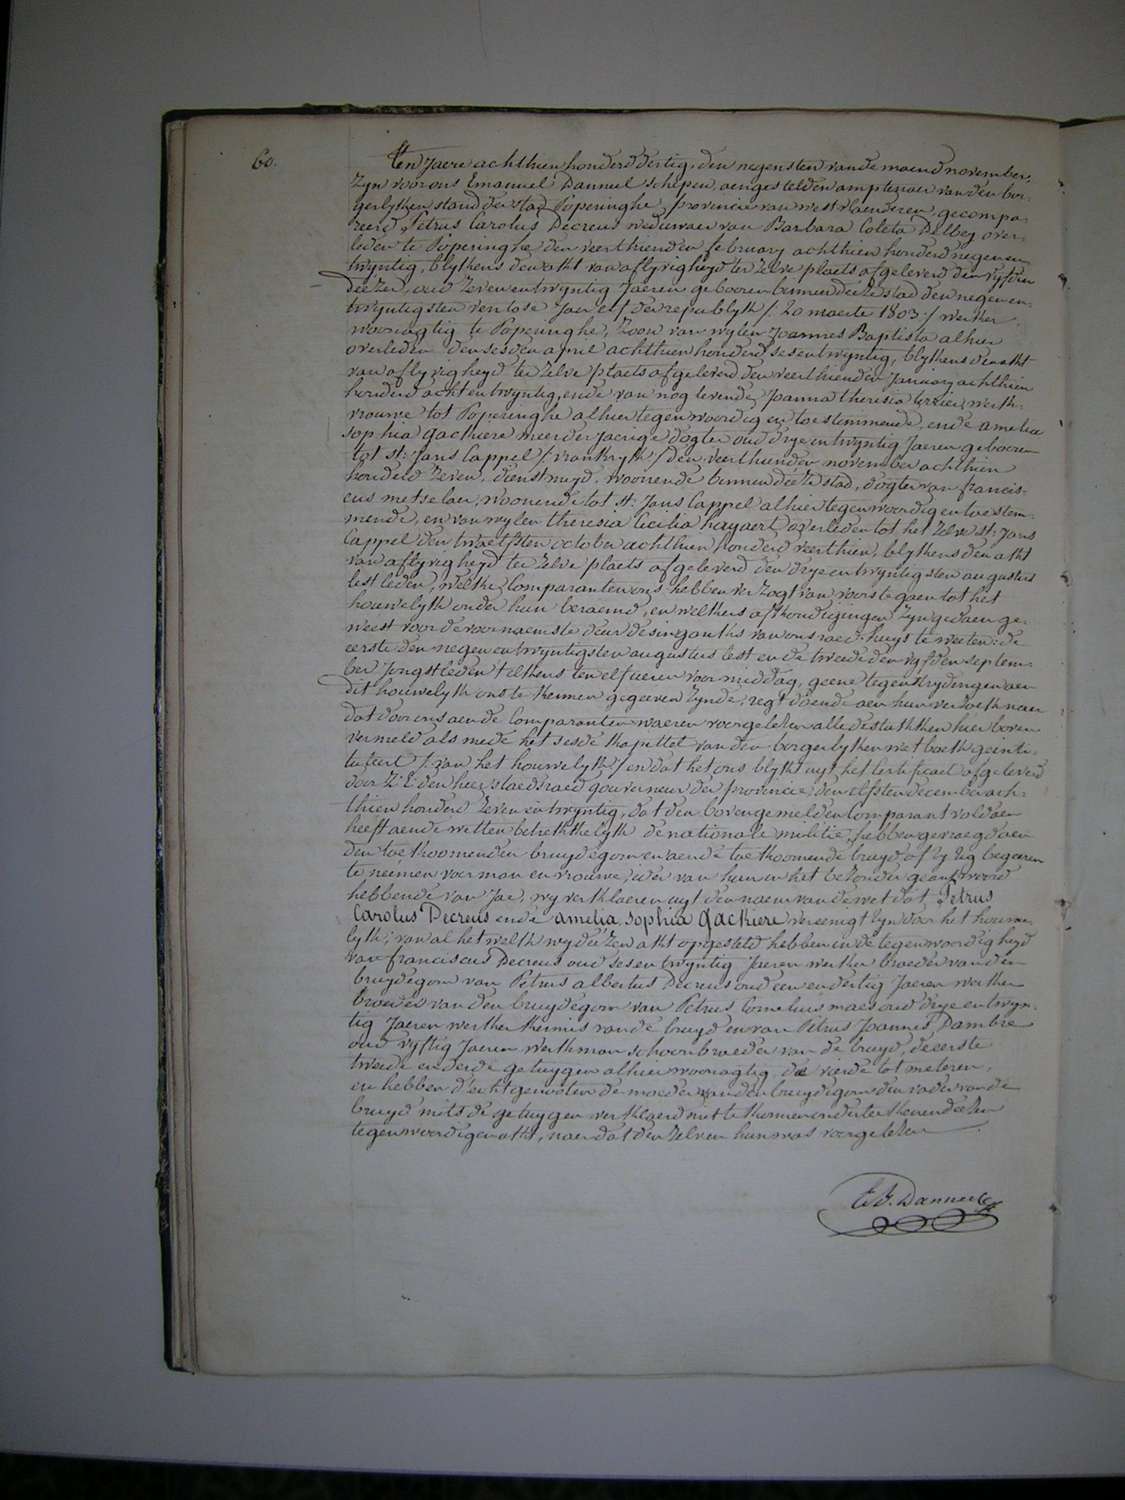 60.
Ten Jaere achthien honderd dertig, den negensten van de maend november,
zyn voor ons Emanuel Danneel schepen, aengestelden amptenaer van den bor-
gerlyken stand der stad Poperinghe, provincie van westvlaenderen, gecompa-
reerd, Petrus Carolus Decreus weduwaer van Barbara Coleta Delbey over-
leden te Poperinghe den veerthienden february achthien honderd negen en
twyntig, blykens den akt van aflyvigheyd ter zelve plaets afgeleverd den vyfden
deezer, oud zeven en twyntig Jaeren gebooren binnen deeze stad den negen en
twyntigsten ventose Jaer elf der republyk /: 20 maerte 1803 :/ werker
woonagtig te Poperinghe, zoon van wylen Joannes Baptista alhier
overleden den sesden april achthien honderd ses en twyntig, blykens den akt
van aflyvigheyd ter zelve plaets afgeleverd den veerthienden January achthien
honderd acht en twyntig, ende van nog levende Joanna theresia werk-
vrouwe tot Poperinghe alhier tegenwoordig en toestemmende, ende amelia
sophia Gackiere meerderjaerige dogter oud drye en twyntig Jaeren gebooren
tot st: Jans Cappel /: vrankryk :/ den veerthienden november achthien
honderd zeven, dienstmeyd, woonende binnen deeze stad, dogter van francis-
cus metselaer, woonende tot st: Jans Cappel alhier tegenwoordig en toestem-
mende, en van wylen theresia Cecilia hayaert overleden tot het zelve st: Jans
Cappel den twaelfsten october achthien honderd veerthien, blykens den akt
van aflyvigheyd ter zelve plaets afgeleverd den drye en twyntigsten augustus
lestleden, welke Comparanten ons hebben verzogt van voorts te gaen tot het
houwelyk onder hun beraemd, en welkers afkondigingen zyn gedaen ge-
weest voor de voornaemste deur des ingankx van ons raed-huys te weeten: de
eerste den negen en twyntigsten augustus lest en de tweede den vyfden septem-
ber Jongstleden t'elkens ten elf ueren voormiddag, geene tegenkrydingen aen
dit houwelyk ons te kennen gegeeven zynde, regt doende aen hun verzoek naer
dat door ons aen de Comparanten waeren voorgelezen alle de stukken hier boven
vermeld als mede het sesde kapittel van den borgerlyken wetboek geinti-
tuleert /: van het houwelyk :/ en dat het ons blykt uyt het certificaet afgeleverd
door z'E: den heer staedsraed gouverneur der provincie, den elfsten december ach-
thien honderd zeven en twyntig, dat den bovengemelden comparant voldaen
heeft aen de wetten betrekkelyk de nationale militie, hebben gevraegd aen
den toekoomenden bruydegom en aen de toekoomende bruyd of zy zig begeeren
te neemen voor man en vrouwe, ider van hun in het bezonder geantwoord
hebbende van Jae, wy verklaeren uyt den naem van de wet dat, Petrus
Carolus Decreus ende amelia, sophia Gackiere vereenigt zyn door het houwe-
lyk; van al het welk wy deezen akt opgesteld hebben in de tegenwoordigheyd
van franciscus Decreus oud ses en twyntig Jaeren werker broeder van den
bruydegom van Petrus albertus Decreus oud een en dertig Jaeren werker
broeder van den bruydegom van Petrus Cornelius maes oud drye en twyn-
tig Jaeren werker kennis van de bruyd en van Petrus Joannes Dambre
oud vyftig Jaeren werkman schoonbroeder van de bruyd, de eerste
tweede en derde getuygen alhier woonagtig de vierde tot meteren,
en hebben d'echtgenooten de moeder van den bruydegom den vader van de
bruyd mits de getuygen verklaerd niet te konnen onderteekenen deezen
tegenwoordigen akt, naer dat den zelven hun was voorgelezen
Danneel